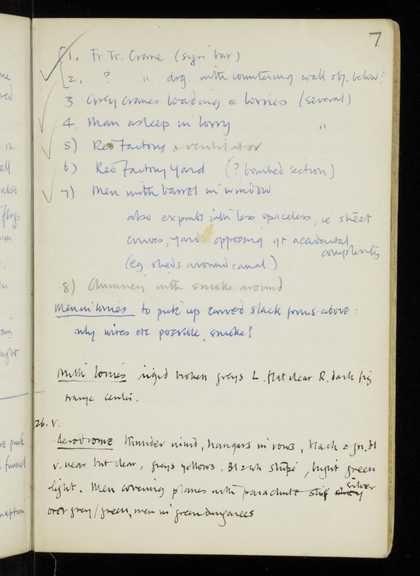 7
1. Fr. Tr. Crane (sign bar)
2. ? " drg with countering wall obj. below?
3 Grey Cranes loading a lorries (several)
4. Man asleep in lorry "
5) Red Factory & ventilator
6) Red Factory Yard (? bombed section)
7) Men with barrel in window
also expts with less spaceless, ie sheet
curves, yard opposing yt accidental
complexities
(eg sheds around canal)
8) Chimney with smoke around
Men in lorries to pick up curved slack forms above:
why wires etc possible, smoke?
With lorries rigid broken greys L. flat clear R. dark fig
centre.
26. V.
Aerodrome Thunder wind, hangars in rows, black
v. near but clear, greys yellows. Bl & wh stripe, light green
light. Men covering planes with parachute silver
over grey/green, men in green dungarees